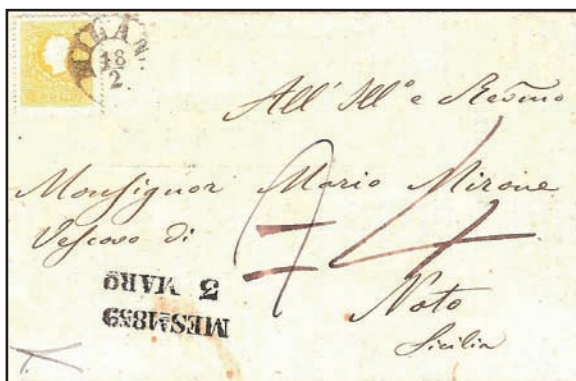 MILANO
18
2
All' Ill° e Revmo
Monsignor Mario Mirone
Vescovo di
4
Noto
Sicilia
MES. 1859
3 MARO